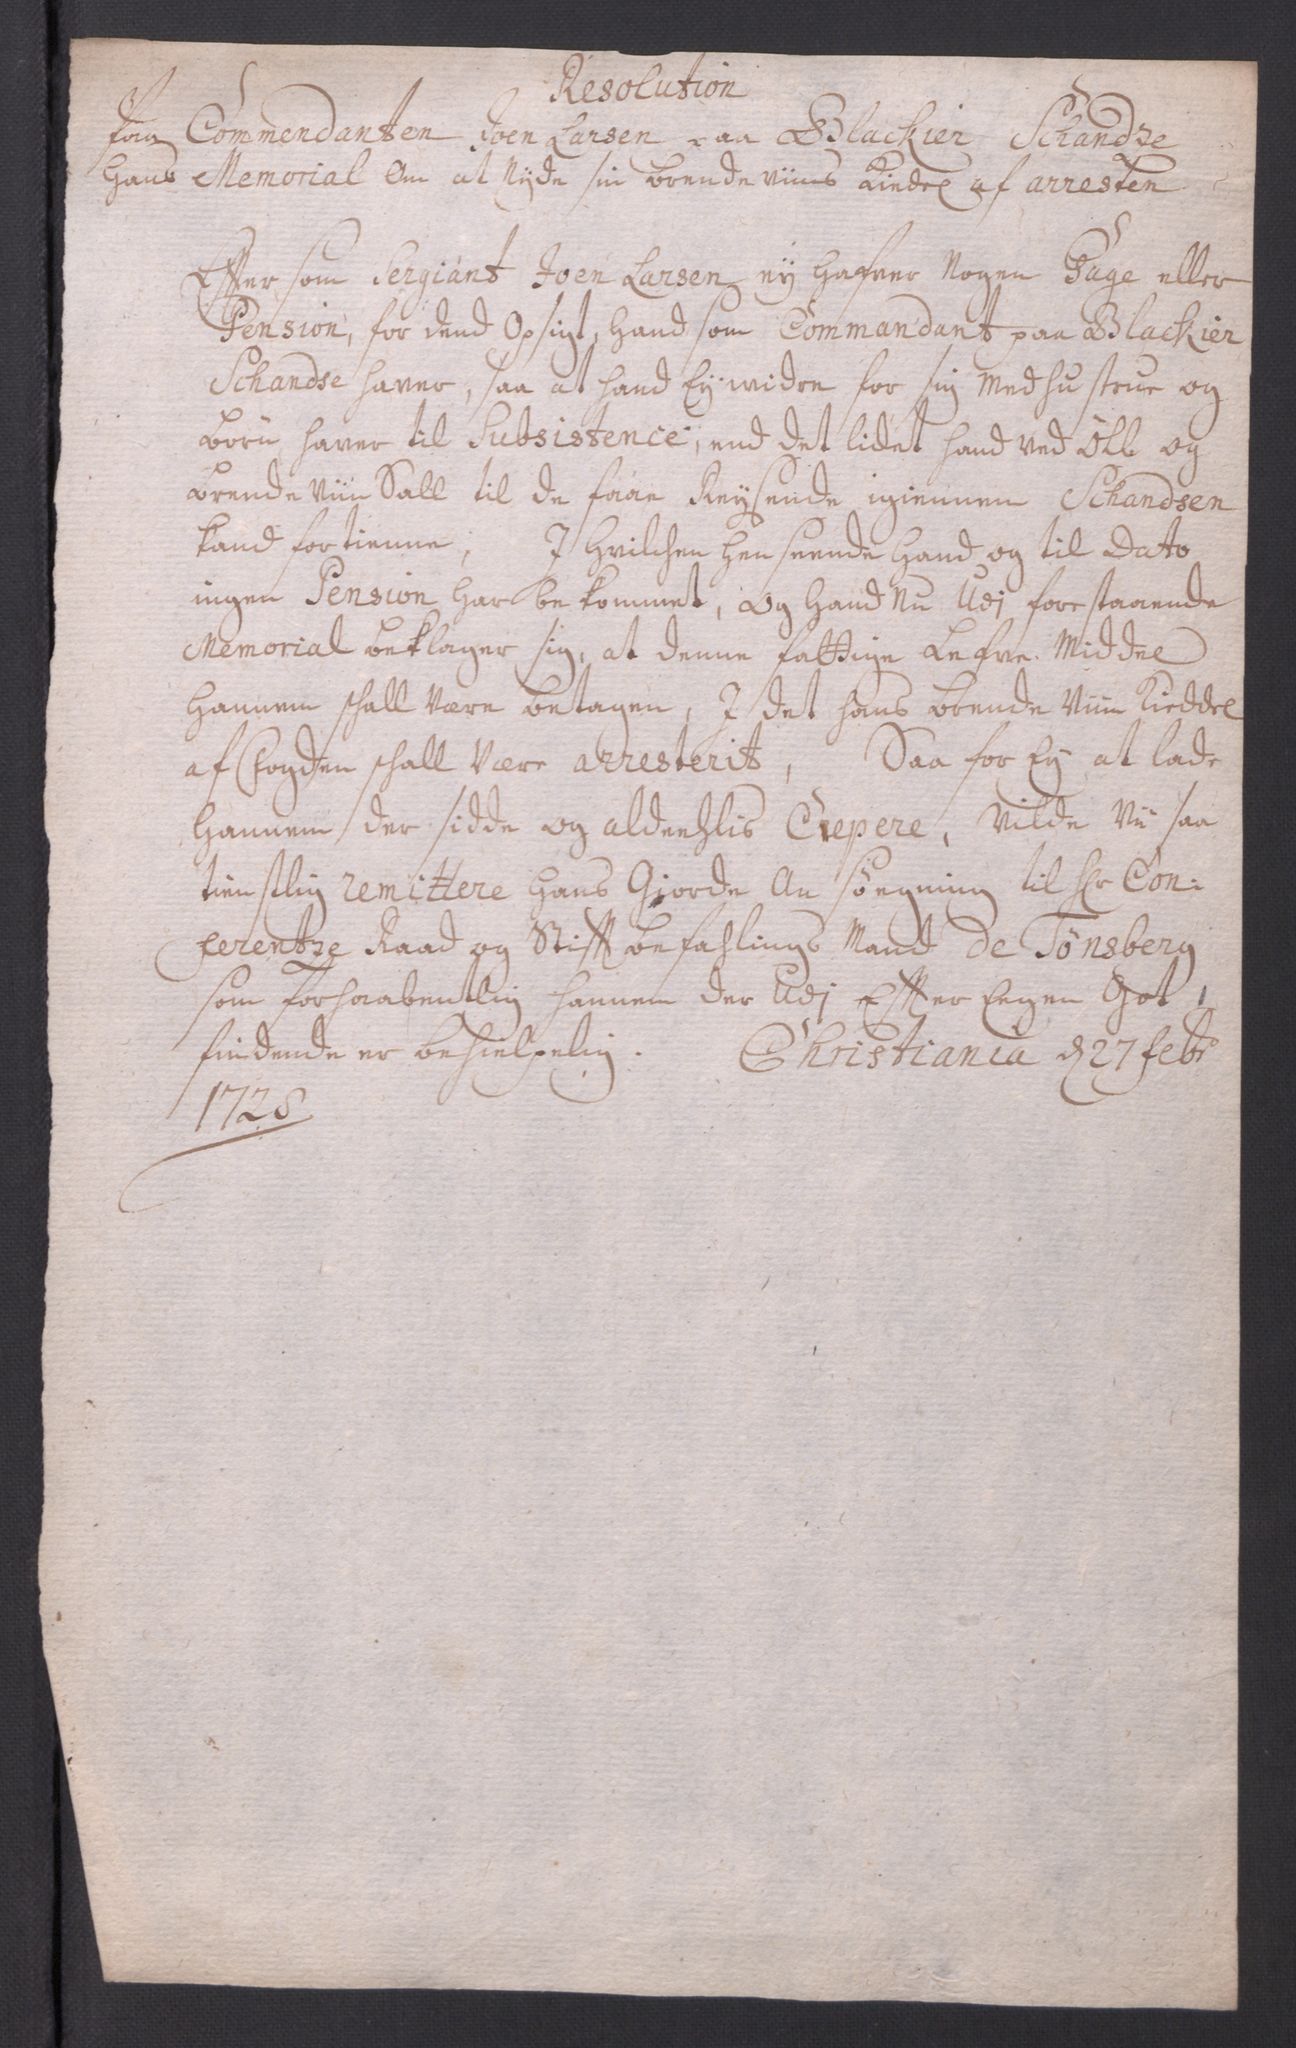 Resolution
paa Commendanten Joen Larsen paa Blackier Schandze
hans Memorial Om at Nyde sin brende viins Kiedel af arresten
Effter som Sergiant Joen Larsen ey hafver Nogen Gage eller
Pension, for dend Opsigt, hand som Commandant paa Blackier
Schandse haver, saa at hand Ey widre for sig Med hustrue og
börn haver til Subsistence, end det lidet hand ved Öll og
brende Viin Sall til de faae Reysende igiennem Schandsen
kand fortienne, J hvilchen hen seende hand og til Dato
ingen Pension har be kommet, og hand Nu Udj forestaaende
Memorial beklager sig, at denne fattige Lefve Middel
hannem schall være betagen, J det hans brende Viin Kieddel
af Fogden schall være arresterit, Saa for Ey at lade
hannem der sidde og aldeehlis Crepere, Vilde Vii saa
tienstlig remittere hans Giorde An söegning til Hr Con-
ferentze Raad og Stiftbefahlings Mand de Tönsberg
som forhaabentlig hannem der Udj Effter Eegen Got
findende er behielpelig. Christiania d 27 febr
1728